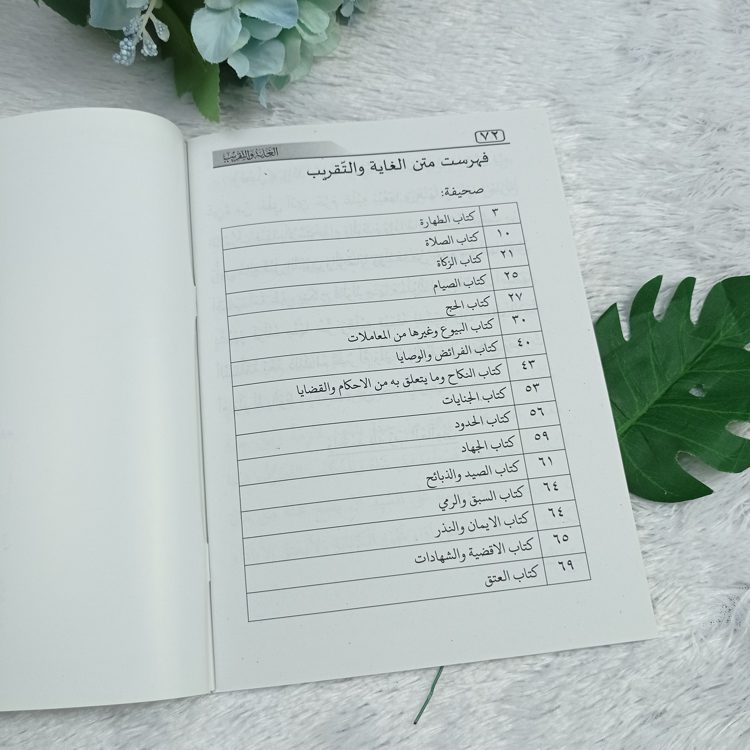 ٧٢
الغاية والتقريب
فهرست متن الغاية والتّقريب
صحيفة:
٣ كتاب الطهارة
١٠ كتاب الصلاة
٢١ كتاب الزكاة
٢٥ كتاب الصيام
٢٧ كتاب الحج
٣٠ كتاب البيوع وغيرها من المعاملات
٤٠ كتاب الفرائض والوصايا
٤٣ كتاب النكاح وما يتعلق به من الاحكام والقضايا
٥٣ كتاب الجنايات
٥٦ كتاب الحدود
٥٩ كتاب الجهاد
٦١ كتاب الصيد والذبائح
٦٤ كتاب السبق والرمي
٦٤ كتاب الايمان والنذر
٦٥ كتاب الاقضية والشهادات
٦٩ كتاب العتق